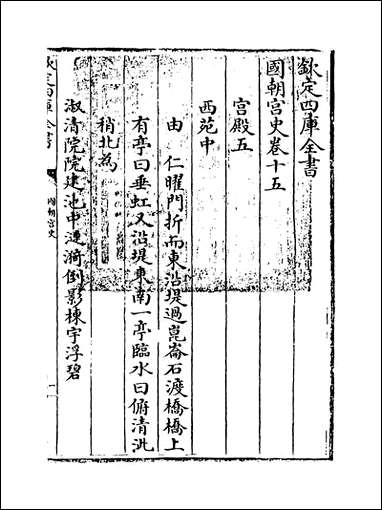 欽定四庫全書
國朝宮史卷十五
宮殿五
西苑中
由 仁曜門折而東沿堤過崑崙石渡橋橋上
有亭曰垂虹又沿堤東南一亭臨水曰俯清泚
稍北為
淑清院院建池中漣漪倒影棟宇浮碧
欽定四庫全書
國朝宮史